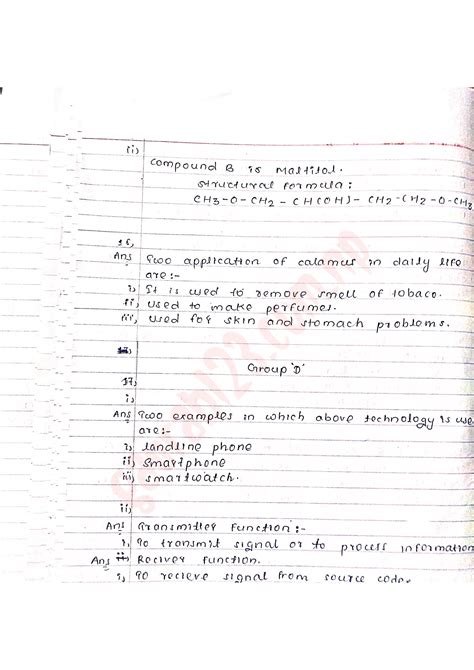 ii)
Compound B is Maltitol.
Structural Formula:
CH3-O-CH2 - CH(OH)- CH2-CH2-O-CH3
16,
Ans Two application of calamus in daily life
are:-
i, It is used to remove smell of tobaco.
ii, used to make perfumes.
iii, used for skin and stomach problems.
Group 'D'
17,
i,
Ans Two examples in which above technology is use
are:-
i, landline phone
ii) Smartphone
iii) smartwatch.
ii)
Ans Transmitter Function:-
i, To transmit signal or to process information
Ans ii, Reciver Function.
i, To recieve signal from source code.